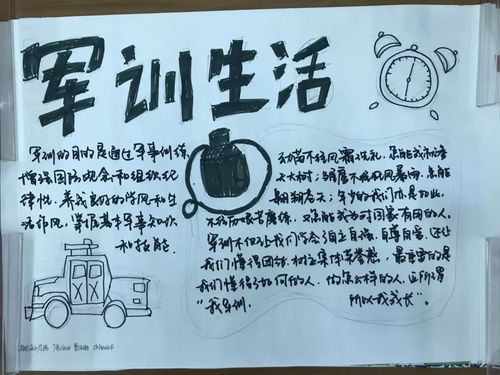 军训生活
军训的目的是通过军事训练,
增强国防观念和组织纪
律性,养成良好的学风和生
活作风,掌握基本军事知识
和技能。
幼苗不经风霜洗礼,怎能成
大树;雏鹰不经狂风暴雨,怎能
翱翔苍天;年少的我们亦是如此,
不经历艰苦磨练,又怎能成为对国家有用的人。
军训不仅让我们学会了自立自强、自尊自爱,还让
我们懂得团结,树立集体荣誉感,最重要的是
我们懂得了如何的人,做怎么样的人,正所谓
"我军训,所以我成长"。